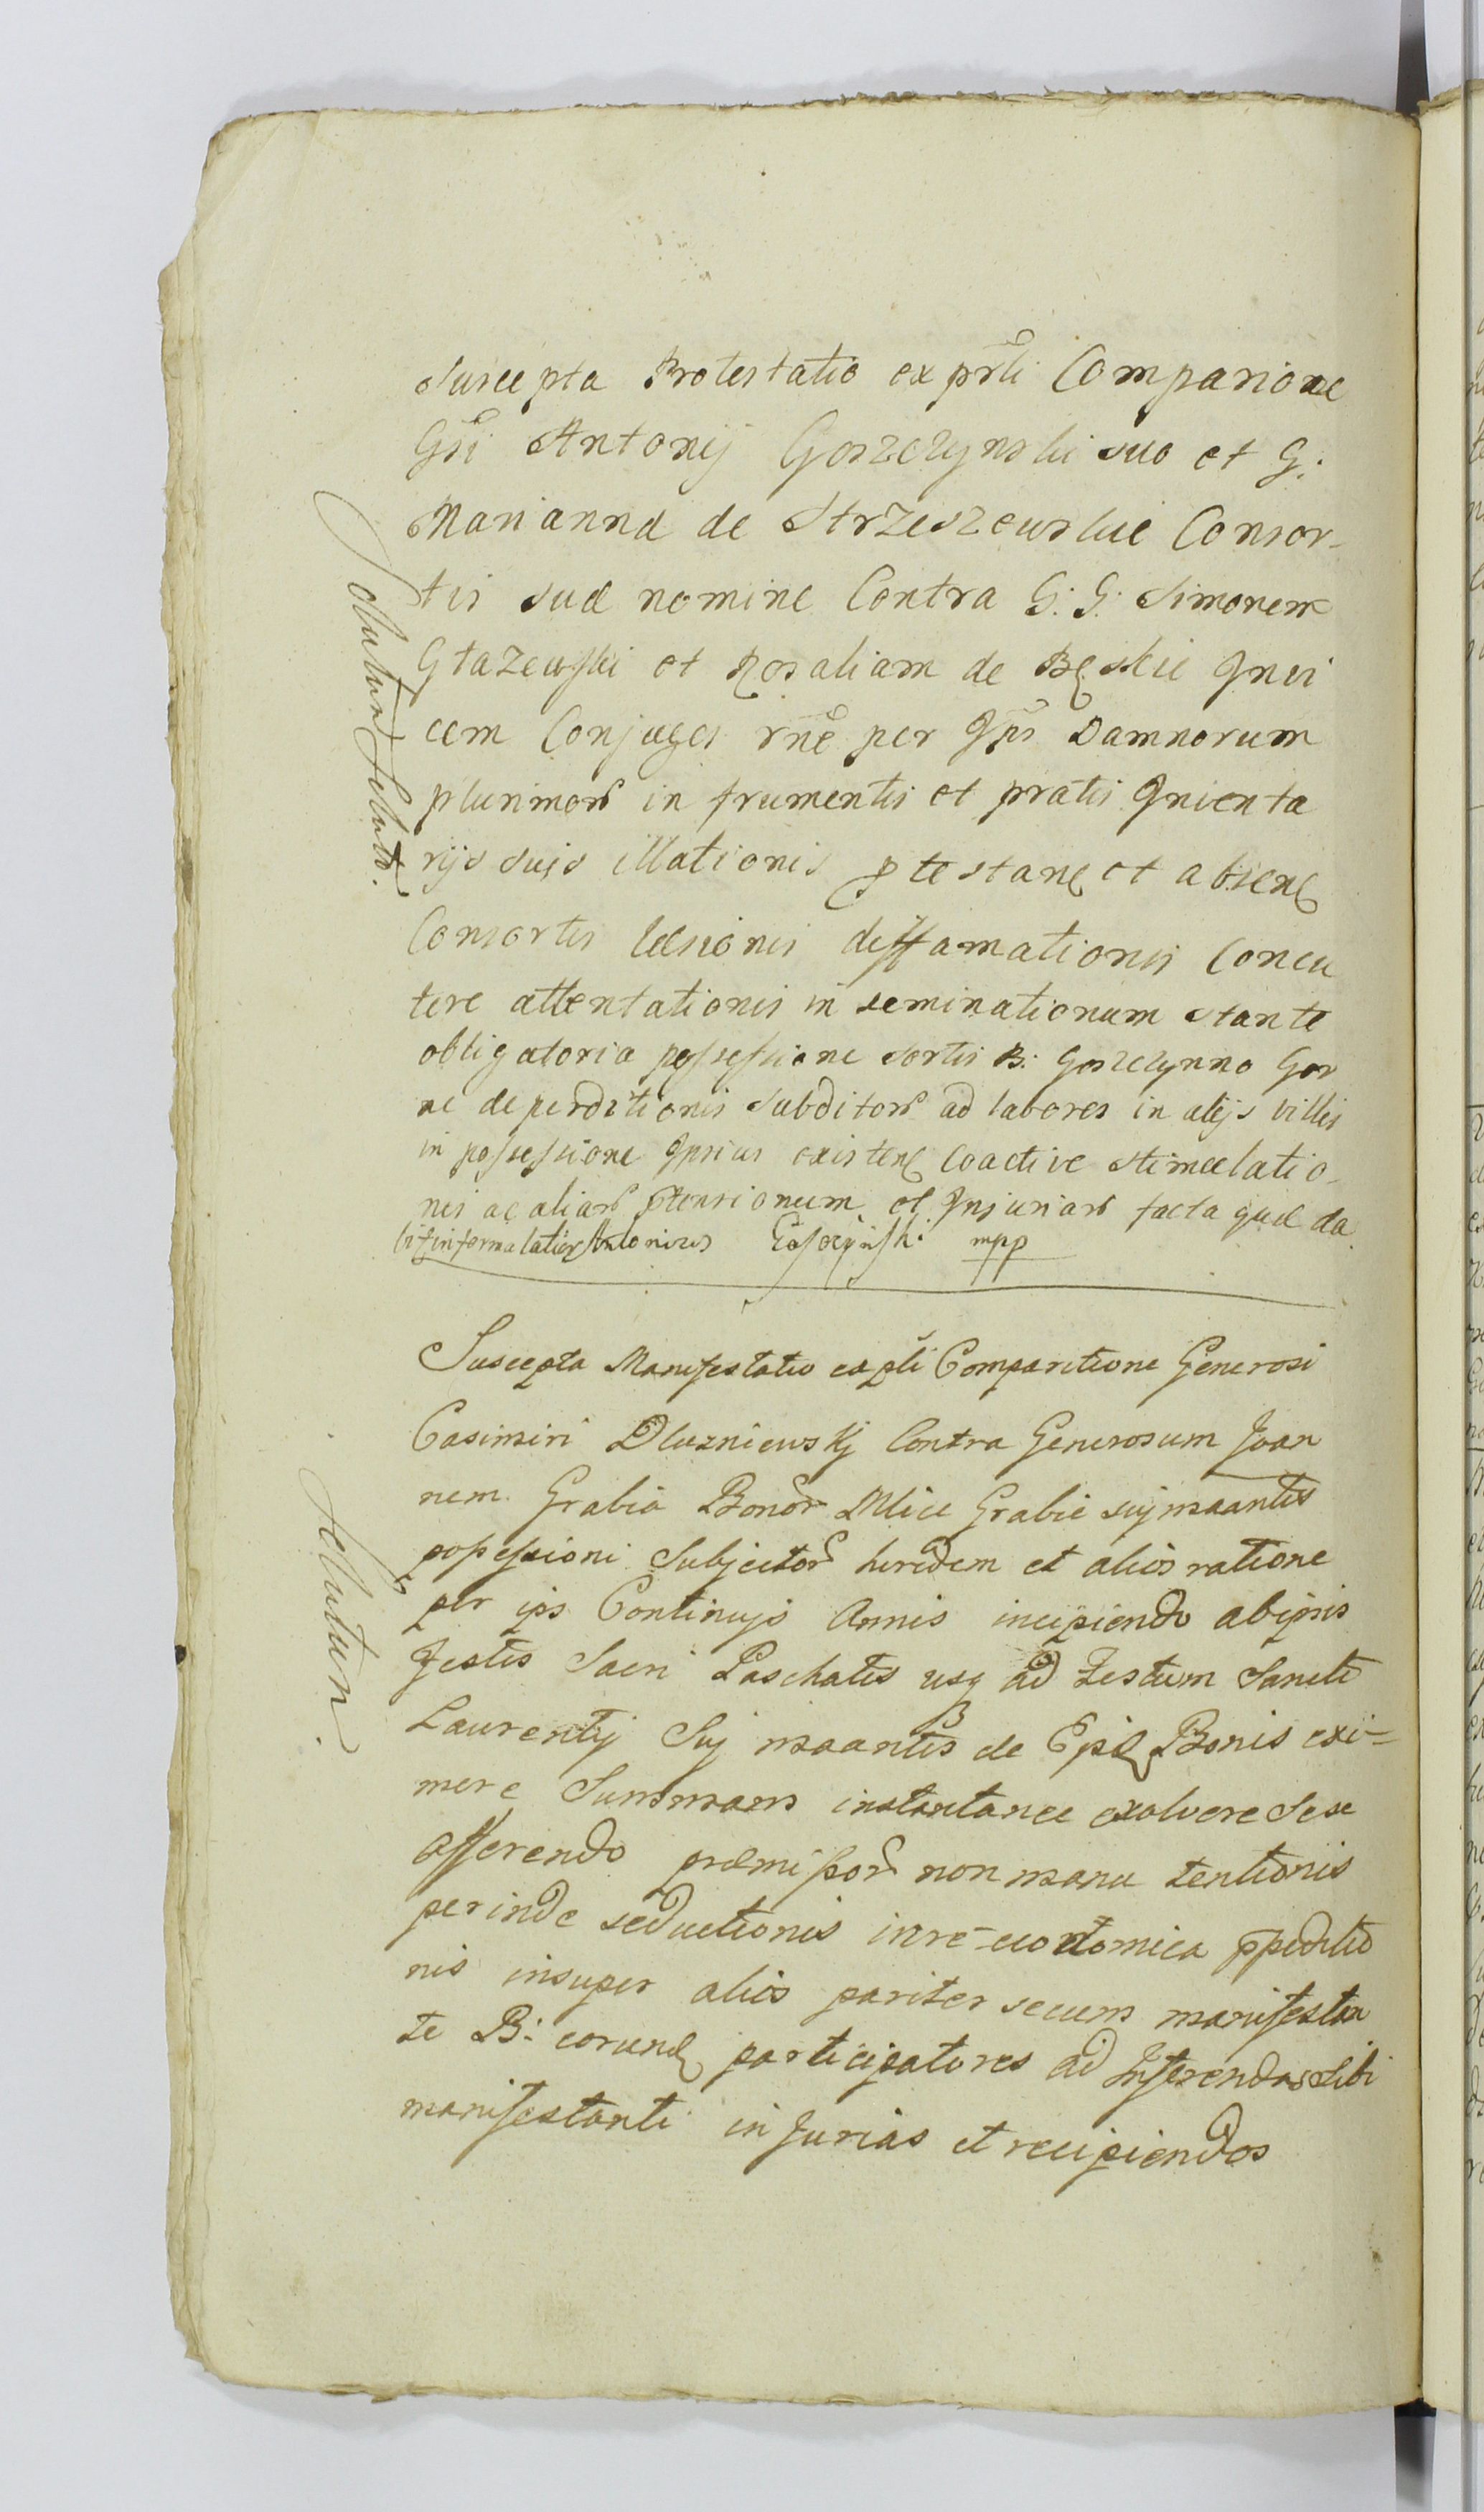 Suscepta Protestatio ex prñti Comparione
Gñi Antonij Goszczynski suo et G:
Marianna de Strzeszewskie Consor-
tis suæ nomine Contra G: G: Simonem
Głazewski et Rosaliam de Bęskie Invi
cem Conjuges rñe per Ips Damnorum
plurimorũ in frumentis et pratis Inventa
rijs suis illationis ptestanę et absenę
Consortis læsionis diffamationis Concu
tere attentationis in seminationum stante
obligatoria possessione sortis B: Goszczynno Gor
ne deperditionis subditorũ ad labores in alijs villis
in possessione Ipsius existenę Coactive stimulatio-
nis ac aliarũ ptensionum et Injuriarũ facta quæ da
bit informalatiorẽ Antonius Gosoczinski mpp
Solutum Solutũ.
Suscepta Manifestatio ex pti Comparitione Generosi
Casimiri Dluzniewskj Contra Generosum Joan
nem Grabia Bonor Mlice Grabie suj maantis
possessioni Subjectorũ heredem et alios ratione
per ips Continujs Annis incipiendo abipsis
Festis Sacri Paschatis usq ad Festum Sancti
Laurentij Suj maantis de Ejsdę Bonis exi=
mere Summam instantanee exolvere sese
asserendo præmissorũ non manu tentionis
perinde seductionis in re economica ppeditio
nis insuper alios pariter secum manifestan
te B: eorundę participatores ad Inferendas sibi
manifestanti inJurias et recipiendos
Solutum.